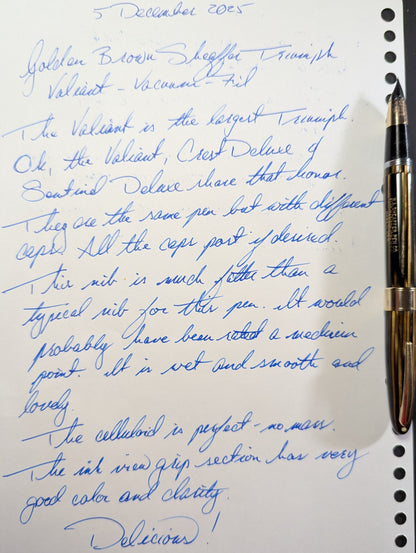 5 December 2025
Golden Brown Sheaffer Triumph
Valiant - Vacuum-Fil
The Valiant is the largest Triumph.
Ok, the Valiant, Crest Deluxe &
Sentinel Deluxe share that honor.
They are the same pen but with different
caps. All the caps post if desired.
This nib is much fatter than a
typical nib for this pen. It would
probably have been a medium
point. It is wet and smooth and
lovely.
The celluloid is perfect - no mars.
The ink view grip section has very
good color and clarity.
Delicious!